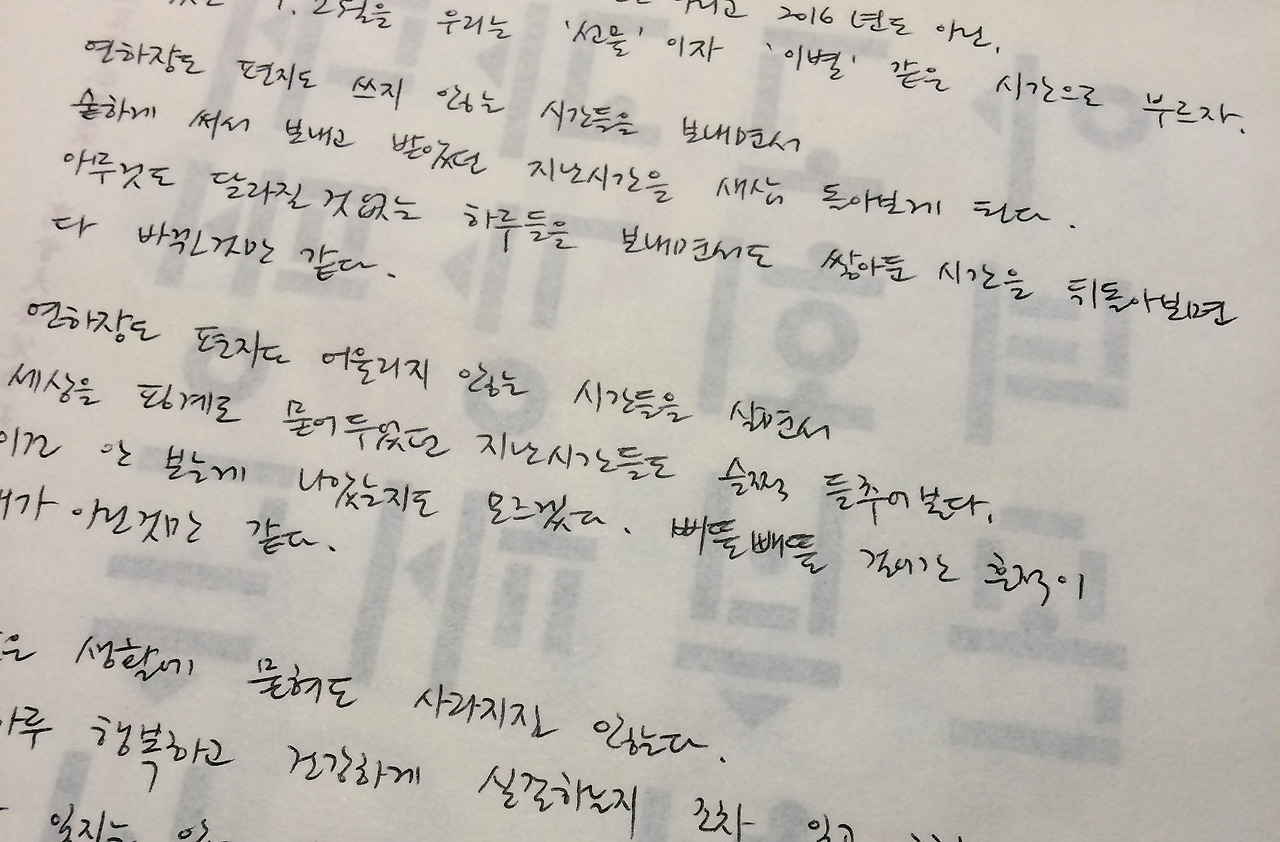 2016년도 아닌,
1, 2월을 우리는 '선물' 이자 '이별' 같은 시간으로 부르자.
연하장도 편지도 쓰지 않는 시간들을 보내면서
숱하게 써서 보내고 받았던 지난시간을 새삼 돌아보게 된다.
아무것도 달라질 것 없는 하루들을 보내면서도 쌓아둔 시간을 뒤돌아보면
다 바뀐것만 같다.
연하장도 편지도 어울리지 않는 시간들을 살면서
세상을 핑계로 묻어두었던 지난시간들도 슬쩍 들추어본다.
안 보는게 나았는지도 모르겠다. 삐뚤빼뚤 걸어간 흔적이
내가 아닌것만 같다.
생활에 묻혀도 사라지진 않는다.
하루 행복하고 건강하게 실존하는지 조차